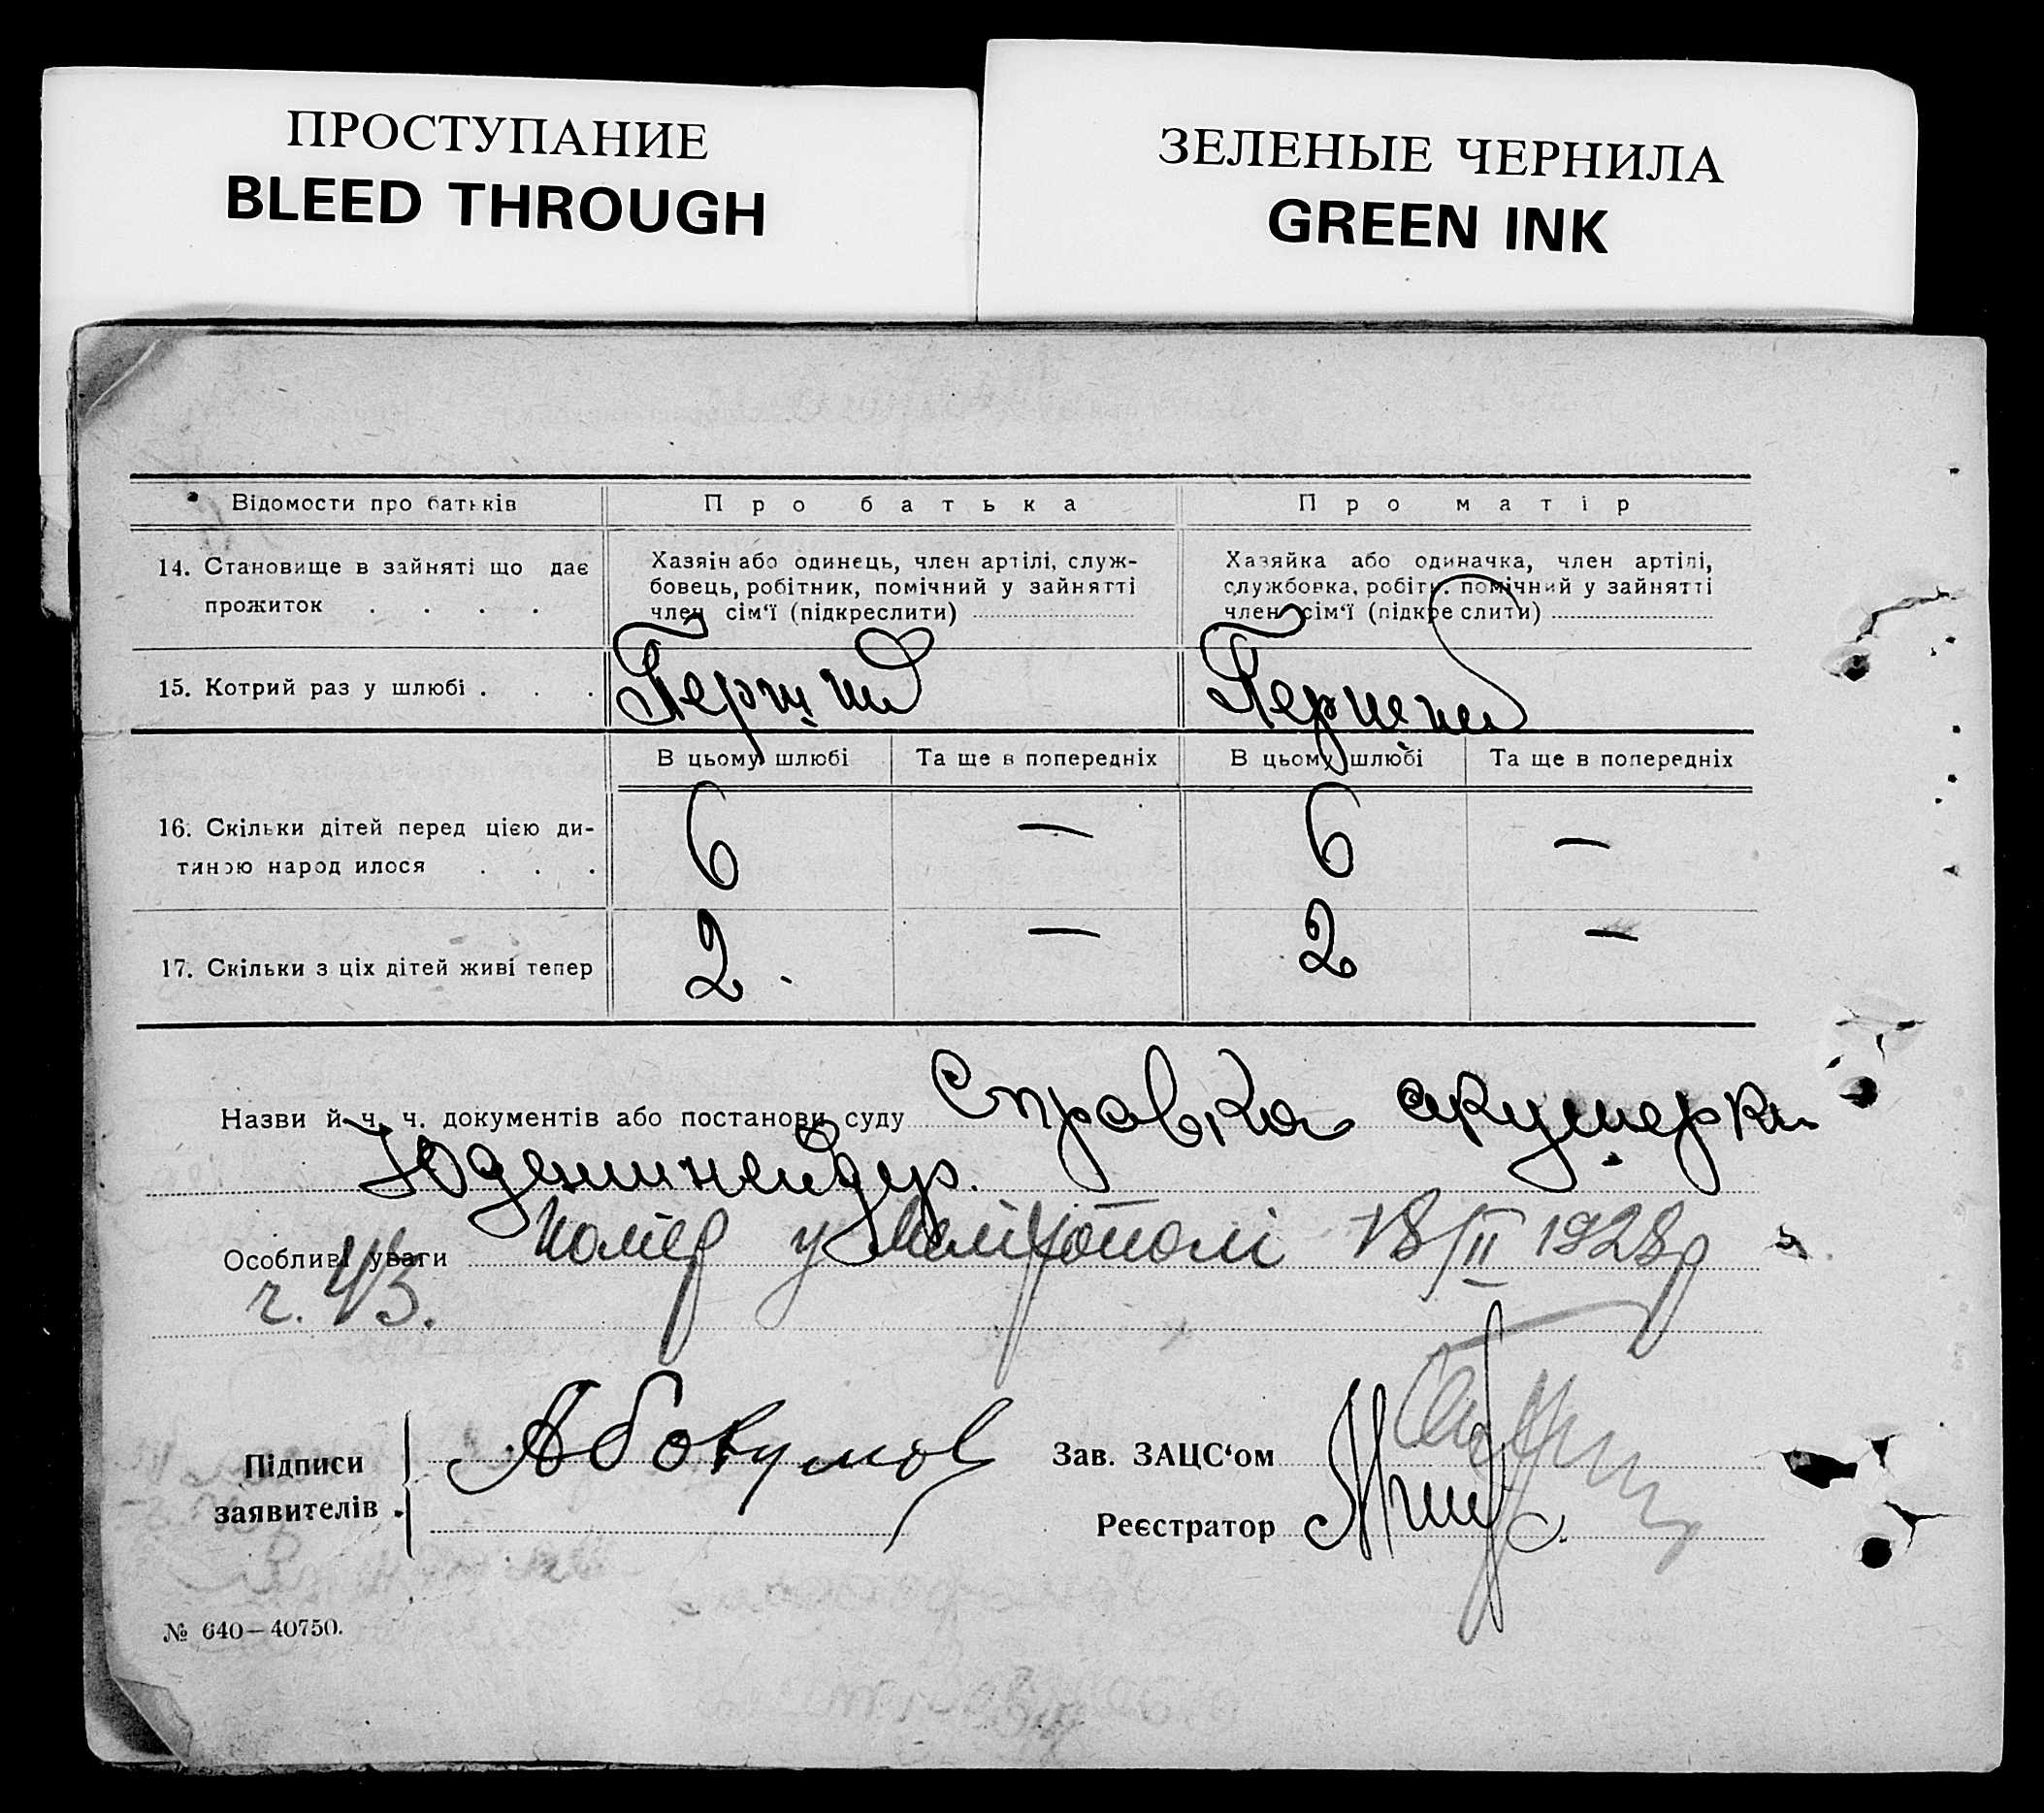 ПРОСТУПАНИЕ
BLEED THROUGH
ЗЕЛЕНЫЕ ЧЕРНИЛА
GREEN INK
Відомости про батьків
Про батька
Про матір
14. Становище в зайняті що дає
прожиток . . . .
Хазяін або одинець, член артілі, служ-
бовець, робітник, помічний у зайнятті
член сім‘ї (підкреслити)
Хазяйка або одиначка, член артілі,
службовка, робітн. помічний у зайнятті
член сім‘ї (підкре слити)
15. Котрий раз у шлюбі . . .
Перший
Перший
В цьому шлюбі
Та ще в попередніх
В цьому шлюбі
Та ще в попередніх
16. Скільки дітей перед цією ди-
тиною народ илося . . .
6
—
6
—
17. Скільки з ціх дітей живі тепер
2.
—
2
—
Назви й ч. ч. документів або постанови суду Справка акушерки
Особливі уваги Помер у Мелітополі 18/II 1928 р
ч. 43.
Підписи
заявителів
Абокумов
Зав. ЗАЦС‘ом
Реєстратор
№ 640—40750.